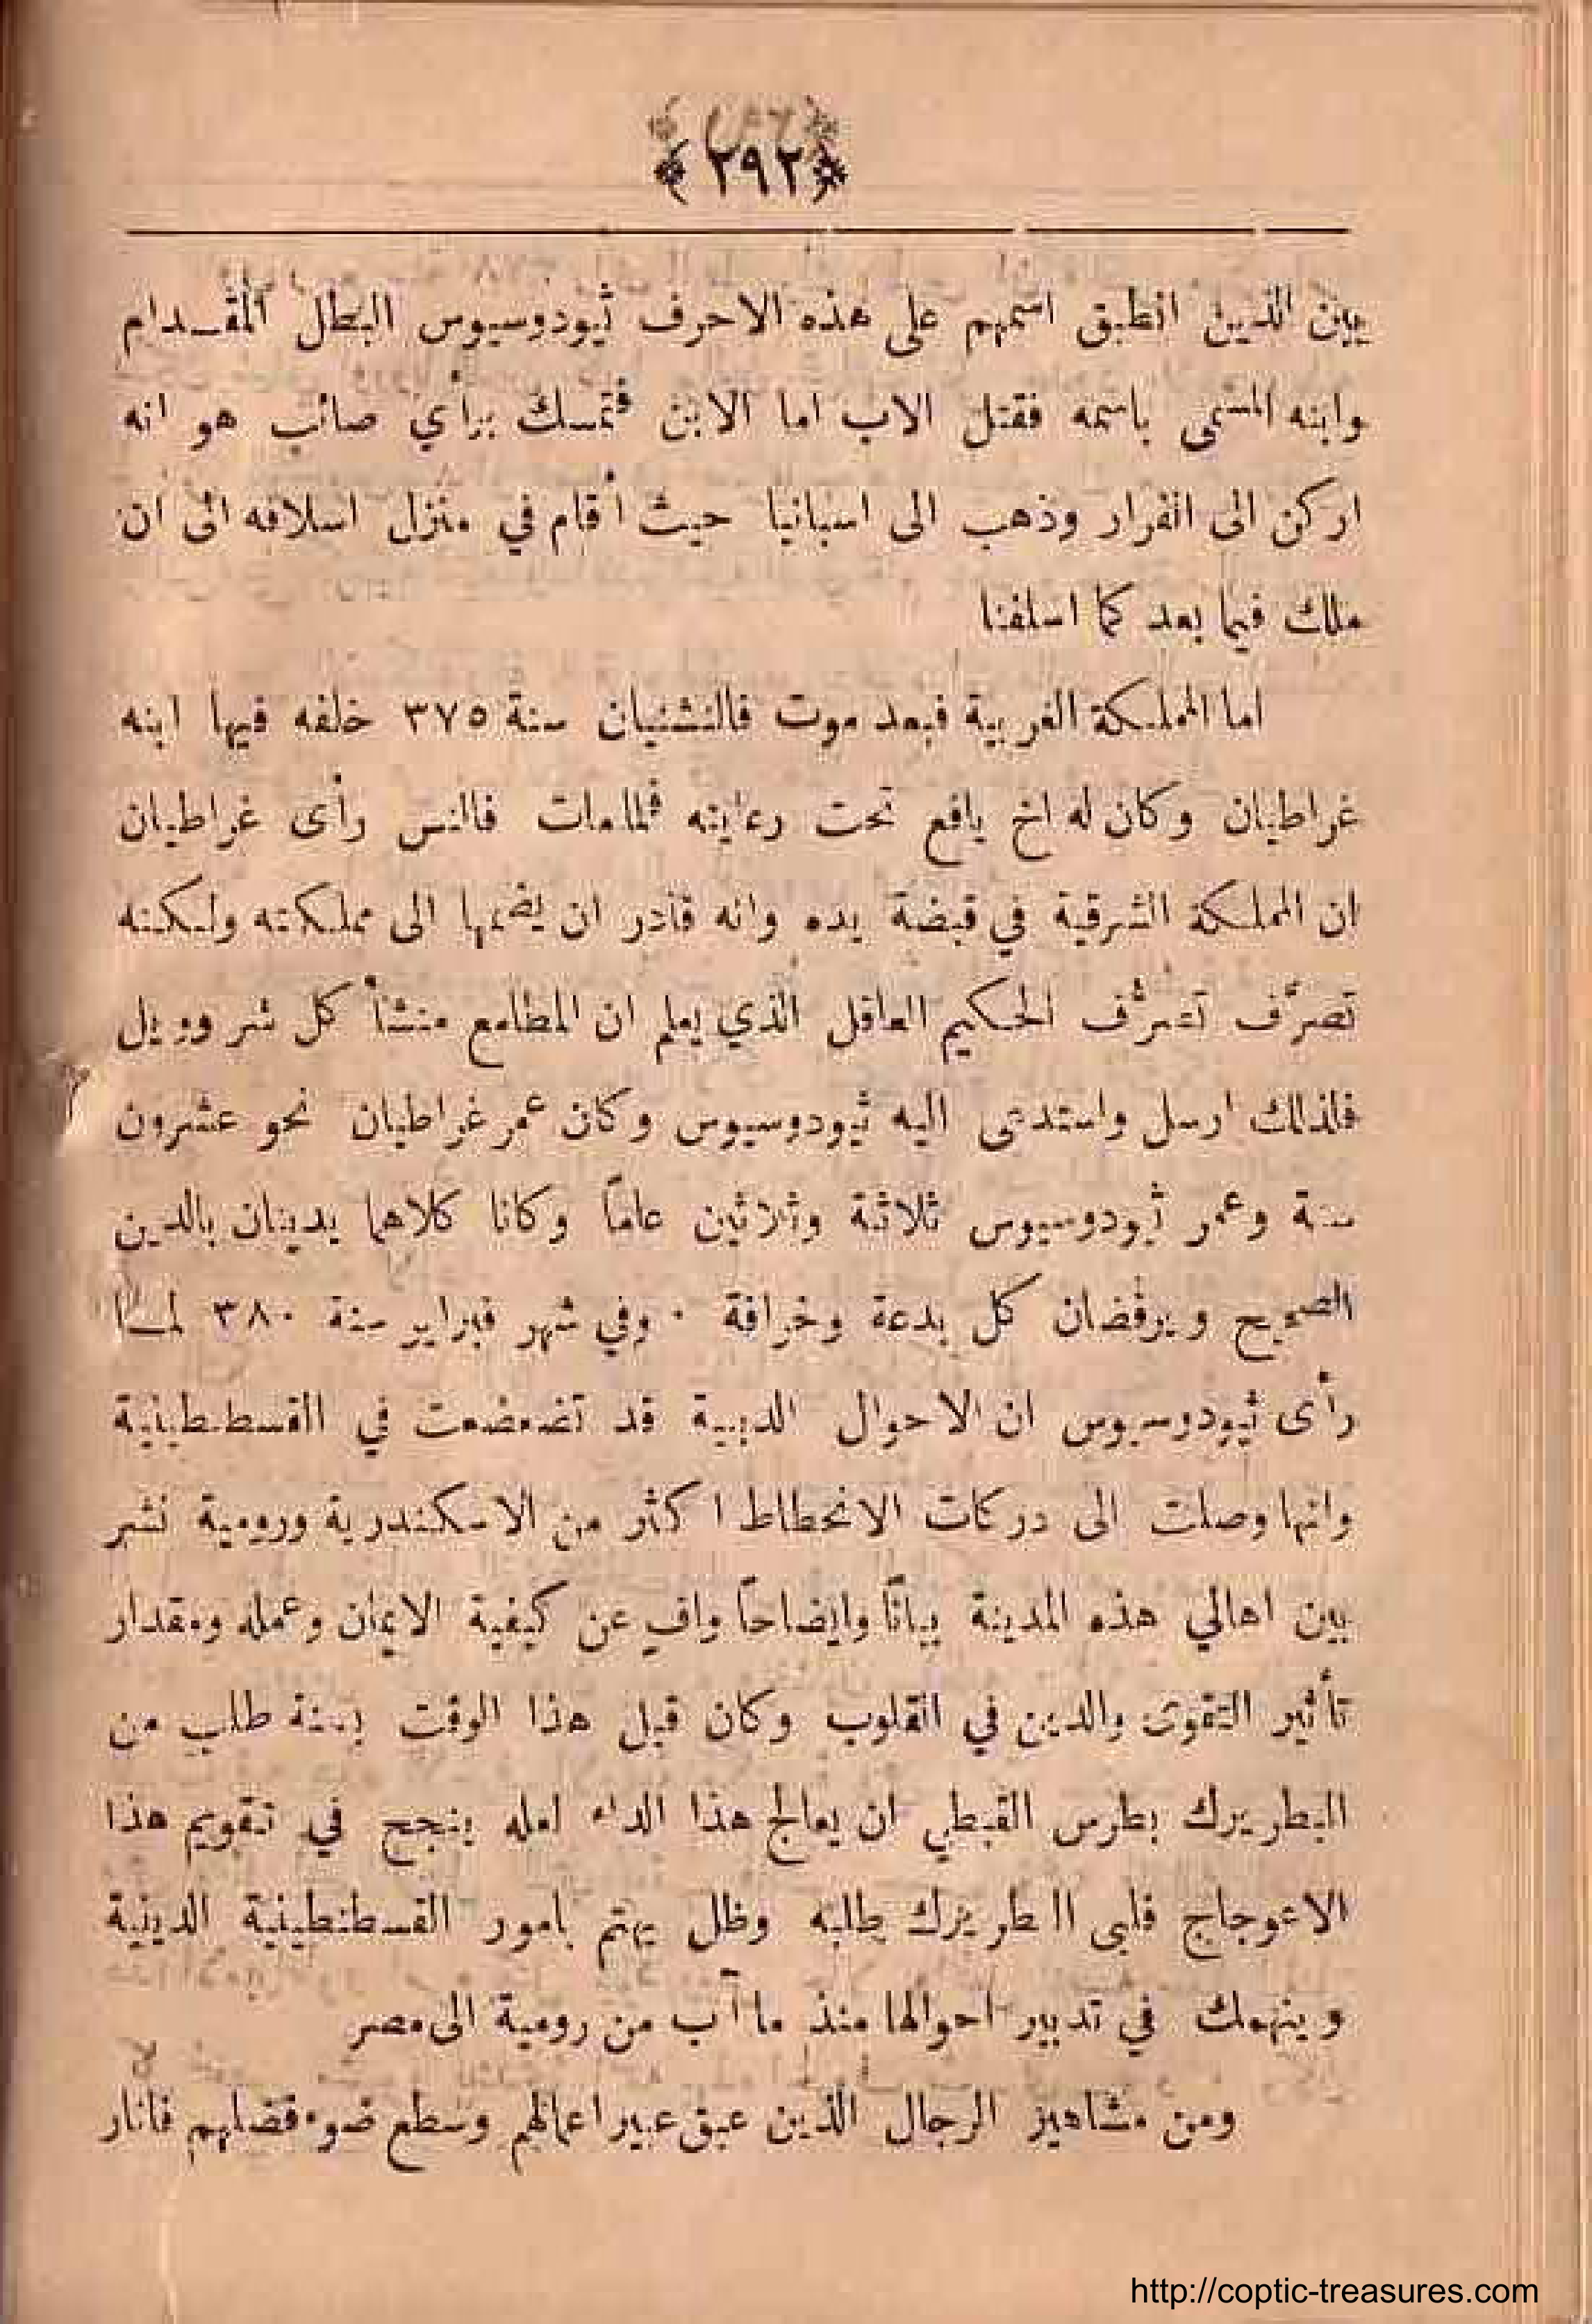 ﴿٢٩٢﴾
بين الذين انطبق اسمهم على هذه الاحرف ثيودوسيوس البطل المقـدام
وابنه المسمى باسمه فقتل الاب اما الابن فتمسك برأي صائب هو انه
اركن الى الفرار وذهب الى اسبانيا حيث أقام في منزل اسلافه الى ان
ملك فيما بعد كما اسلفنا
اما المملكة الغربية فبعد موت فالنشنيان سنة ٣٧٥ خلفه فيها ابنه
غراطيان وكان له اخ يافع تحت رعايته فلما مات فالنس رأى غراطيان
ان المملكة الشرقية في قبضة يده وانه قادر ان يضمها الى مملكته ولكنه
تصرَّف تصرُّف الحكيم العاقل الذي يعلم ان المطامع منشأ كل شر وويل
فلذلك ارسل واستدعى اليه ثيودوسيوس وكان عمر غراطيان نحو عشرون
سنة وعمر ثيودوسيوس ثلاثة وثلاثين عاماً وكانا كلاهما يدينان بالدين
الصحيح ويرفضان كل بدعة وخرافة ٠ وفي شهر فبراير سنة ٣٨٠ لمـا
رأى ثيودوسيوس ان الاحوال الدينية قد تضعضعت في القسطنطينية
وانها وصلت الى دركات الانحطاط اكثر من الاسكندرية ورومية نشر
بين اهالي هذه المدينة بياناً وايضاحاً وافٍ عن كيفية الايمان وعمله ومقدار
تأثير التقوى والدين في القلوب وكان قبل هذا الوقت بسنة طلب من
البطريرك بطرس القبطي ان يعالج هذا الداء لعله ينجح في تقويم هذا
الاعوجاج فلبى البطريرك طلبه وظل يهتم بامور القسطنطينية الدينية
وينهمك في تدبير احوالها منذ ما آب من رومية الى مصر
ومن مشاهير الرجال الذين عبق عبير اعمالهم وسطع ضوء فضلهم فانار
http://coptic-treasures.com